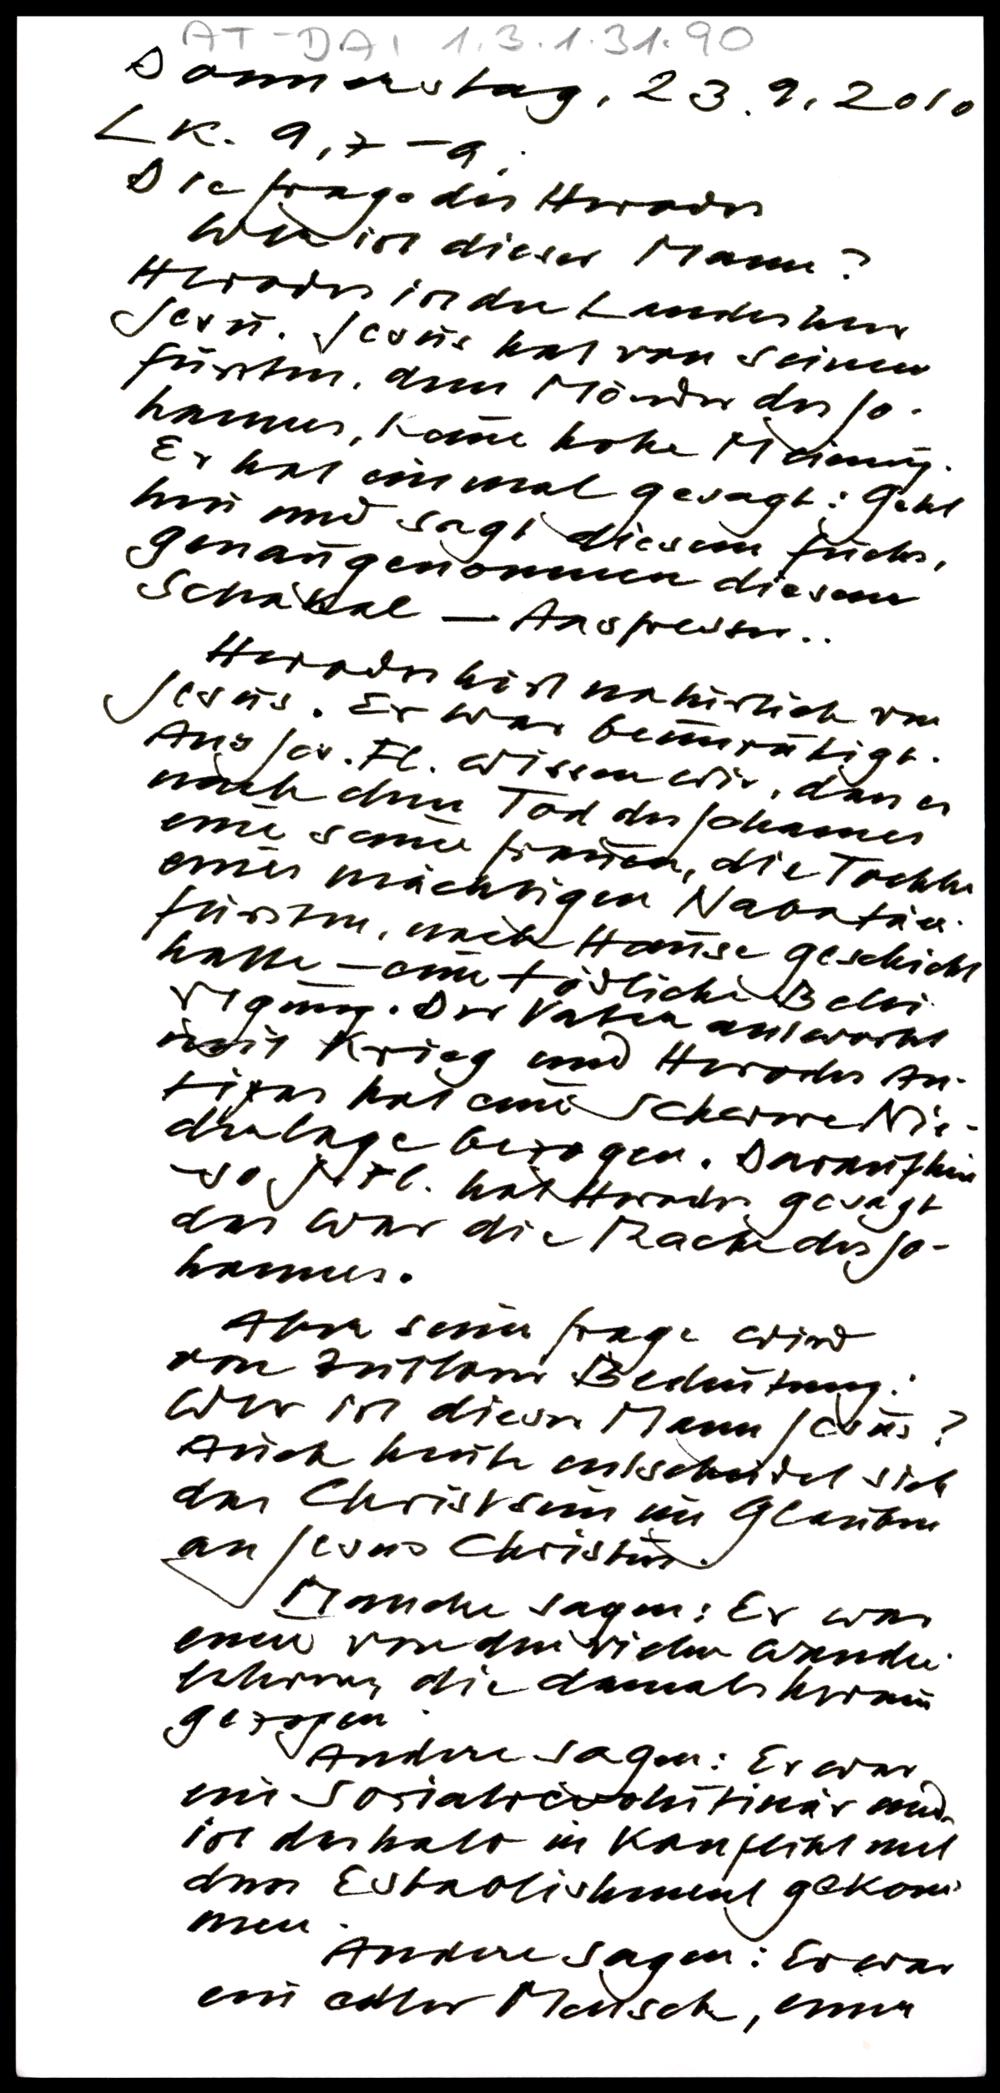 AT-DAI 1.3.1.31.90
Donnerstag, 23.9.2010
Lk. 9,7-9.
Die Frage des Herodes
Wer ist dieser Mann?
Herodes ist der Landesherr
Jesu. Jesus hat von seinem
Fürsten, dem Mörder des Jo-
hannes, keine hohe Meinung.
Er hat einmal gesagt: Geht
hin und sagt diesem Fuchs,
genaugenommen diesem
Schakal — Auspresser..
Herodes hört natürlich von
Jesus. Er war beunruhigt.
Aus Jos. Fl. wissen wir, dass er
nach dem Tod des Johannes
eine seiner Frauen, die Tochter
eines mächtigen Nabatäer-
fürsten, nach Hause geschickt
hatte — eine tödliche Belei-
digung. Der Vater antwortet
mit Krieg und Herodes An-
tipas hat eine schwere Nie-
derlage bezogen. Daraufhin
so J. Fl. hat Herodes gesagt
das war die Rache des Jo-
hannes.
Aber seine Frage wird
von zeitloser Bedeutung:
Wer ist dieser Mann Jesus?
Auch heute entscheidet sich
das Christsein im Glauben
an Jesus Christus.
Manche sagen: Er war
einer von den vielen Wander-
lehrern, die damals herum
gezogen.
Andere sagen: Er war
ein Sozialrevolutinär und
ist deshalb in Konflikt mit
dem Establishment gekom-
men.
Andere sagen: Er war
ein edler Mensch, einer